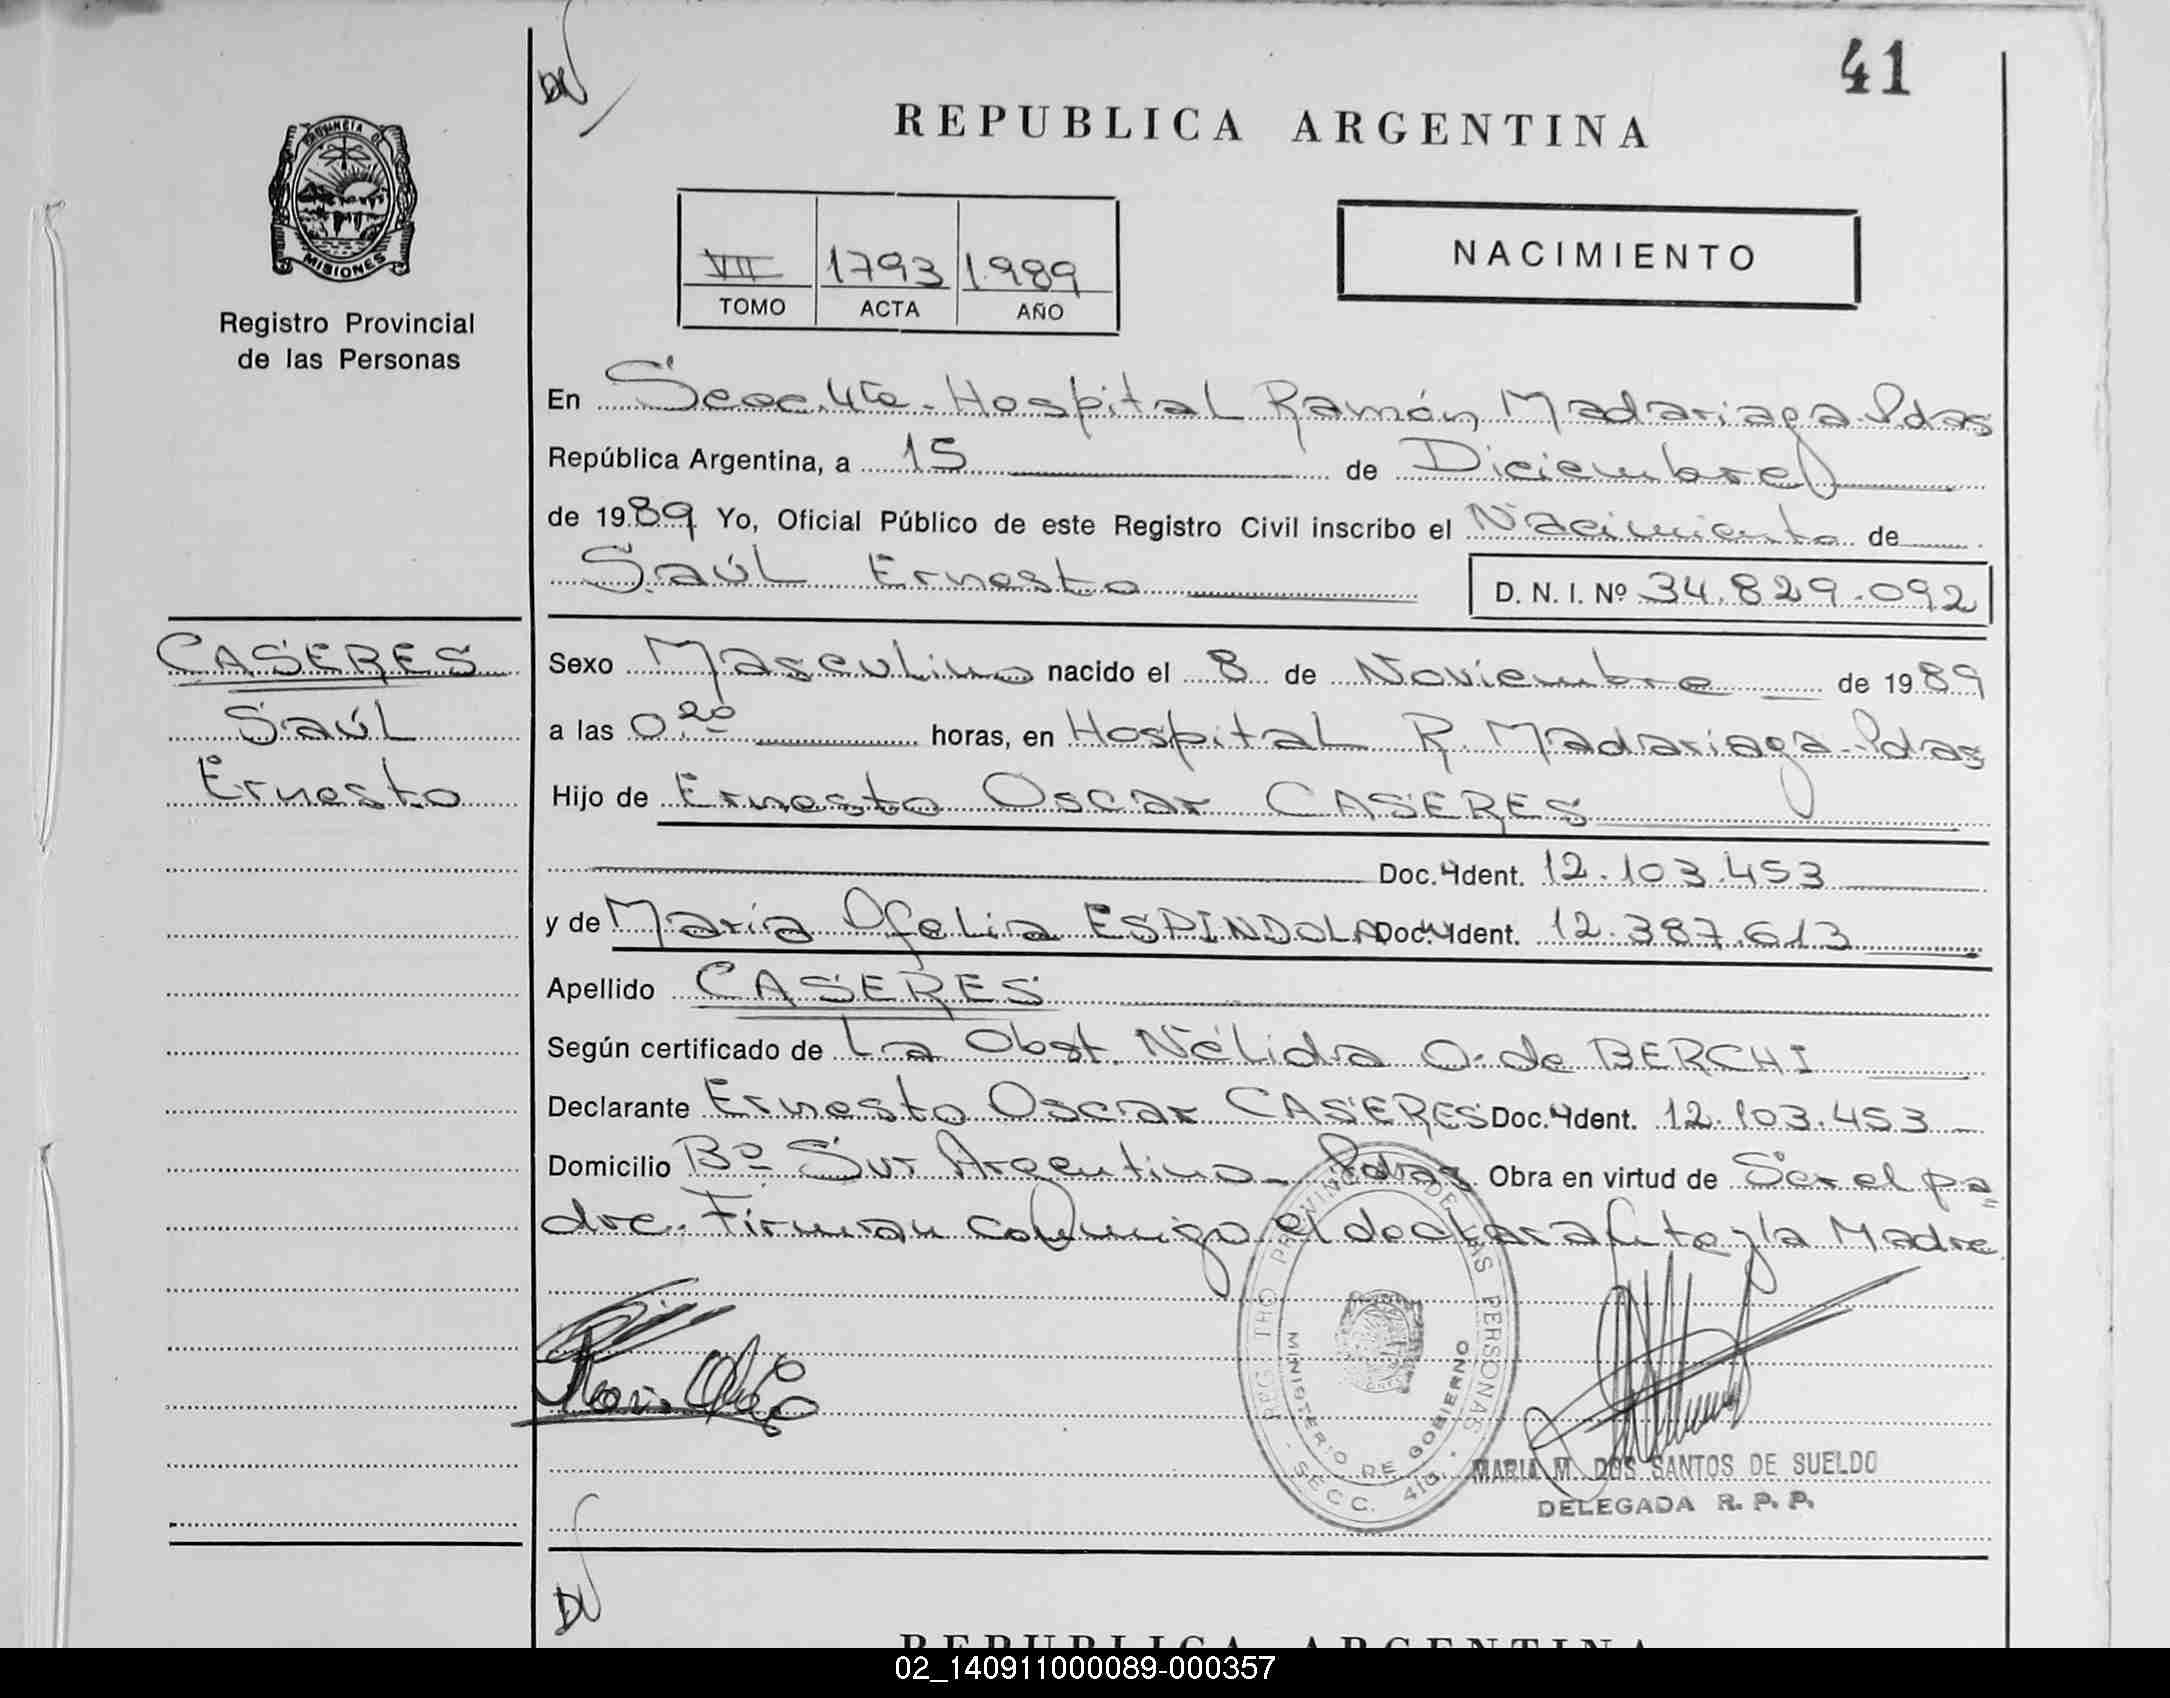 41
REPUBLICA ARGENTINA
PROVINCIA DE
MISIONES
Registro Provincial
de las Personas
VII 1793 1.989
TOMO ACTA AÑO
NACIMIENTO
En Secc. 4ta. Hospital Ramón Madariaga-Pdas
República Argentina, a 15 de Diciembre
de 1989 Yo, Oficial Público de este Registro Civil inscribo el Nacimiento de
Saúl Ernesto D. N. I. Nº 34.829.092
CASERES
Saúl
Ernesto
Sexo Masculino nacido el 8 de Noviembre de 1989
a las 0.20 horas, en Hospital R. Madariaga-Pdas
Hijo de Ernesto Oscar CASERES
Doc. Ident. 12.103.453
y de María Ofelia ESPINDOLA Doc. Ident. 12.387.613
Apellido CASERES
Según certificado de La Obst. Nélida O. de BERCHI
Declarante Ernesto Oscar CASERES Doc. Ident. 12.103.453
Domicilio Bº Sur Argentino - Pdas Obra en virtud de Ser el pa=
dre. Firman conmigo el declarante y la Madre
REGISTRO PROVINCIAL DE LAS PERSONAS
MINISTERIO DE GOBIERNO
SECC. 4ta.
MARIA M. DOS SANTOS DE SUELDO
DELEGADA R. P. P.
REPUBLICA ARGENTINA
02_140911000089-000357